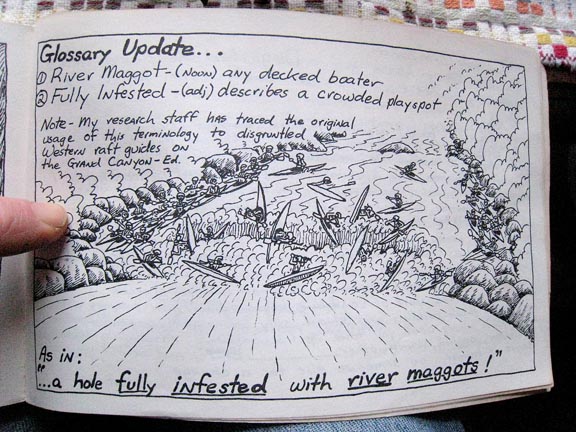 Glossary Update...
① River Maggot - (Noun) any decked boater
② Fully Infested - (adj) describes a crowded playspot
Note - My research staff has traced the original
usage of this terminology to disgruntled
Western raft guides on
the Grand Canyon - Ed.
As in:
"...a hole fully infested with river maggots!"